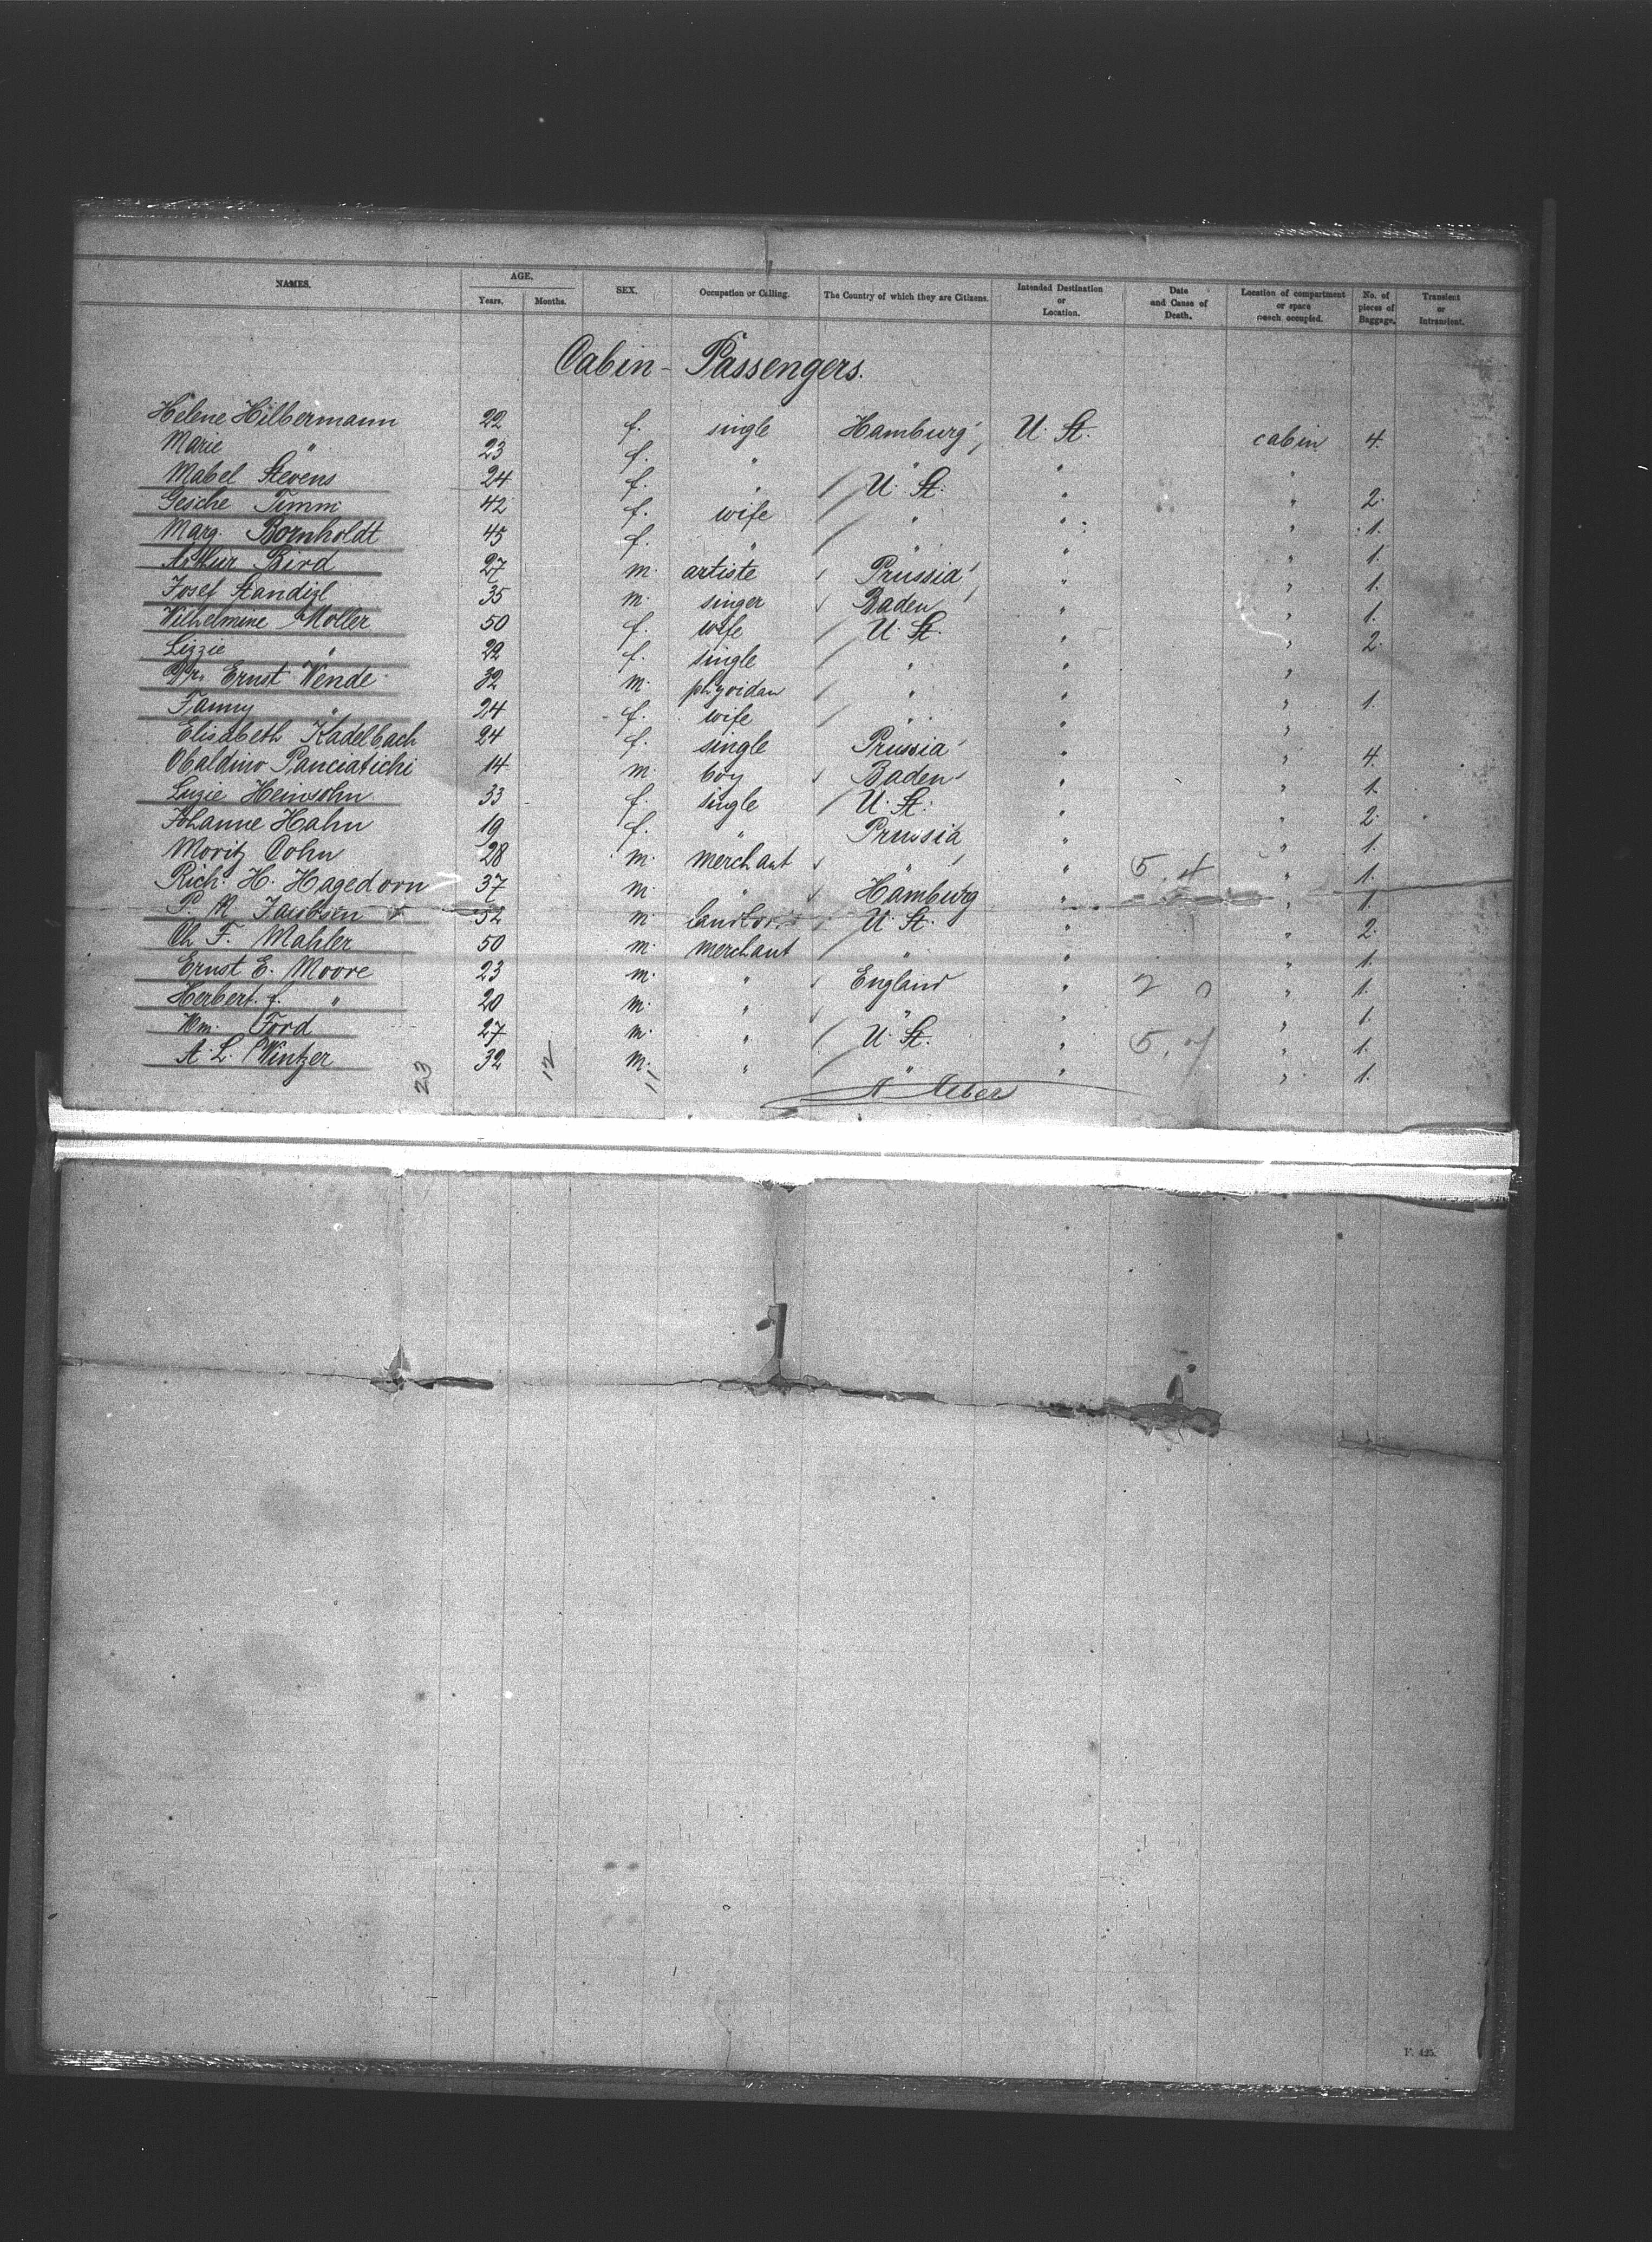 NAMES. AGE. SEX. Occupation or Calling. The Country of which they are Citizens. Intended Destination or Location. Date and Cause of Death. Location of compartment or space each occupied. No. of pieces of Baggage. Transient or Intransient.
Years. Months.
Cabin - Passengers.
Helene Hilbermann 22 f. single Hamburg U. St. cabin 4.
Marie " 23 f. " " " "
Mabel Stevens 24 f. " U. St. " " 2.
Gesche Timm 42 f. wife " " " 1.
Marg. Bornholdt 45 f. " " " " 1.
Arthur Bird 27 m. artiste Prussia " " 1.
Josef Standizl 35 m. singer Baden " " 1.
Wilhelmine Möller 50 f. wife U. St. " " 2.
Lizzie " 22 f. single " " "
Dr. Ernst Wende 32 m. phyoidan " " " 1.
Fanny " 24 f. wife " " "
Elisabeth Kadelbach 24 f. single Prussia " " 4.
Obaldino Panciatichi 14 m. boy Baden " " 1.
Luzie Heinsohn 33 f. single U. St. " " 2.
Johanne Hahn 19 f. " Prussia " " 1.
Moritz Cohn 28 m. merchant " " 5.4 " 1.
Rich. H. Hagedorn 37 m. " Hamburg " " 1.
P. M. Jacobsen 52 m. U. St. " " 2.
Ch. F. Mahler 50 m. merchant " " " 1.
Ernst E. Moore 23 m. " England " " 1.
Herbert f. " 20 m. " " " " 1.
Wm. Ford 27 m. " U. St. " " 1.
A. L. Wintzer 32 m. " " " " 1.
23 12 11
F. 425.